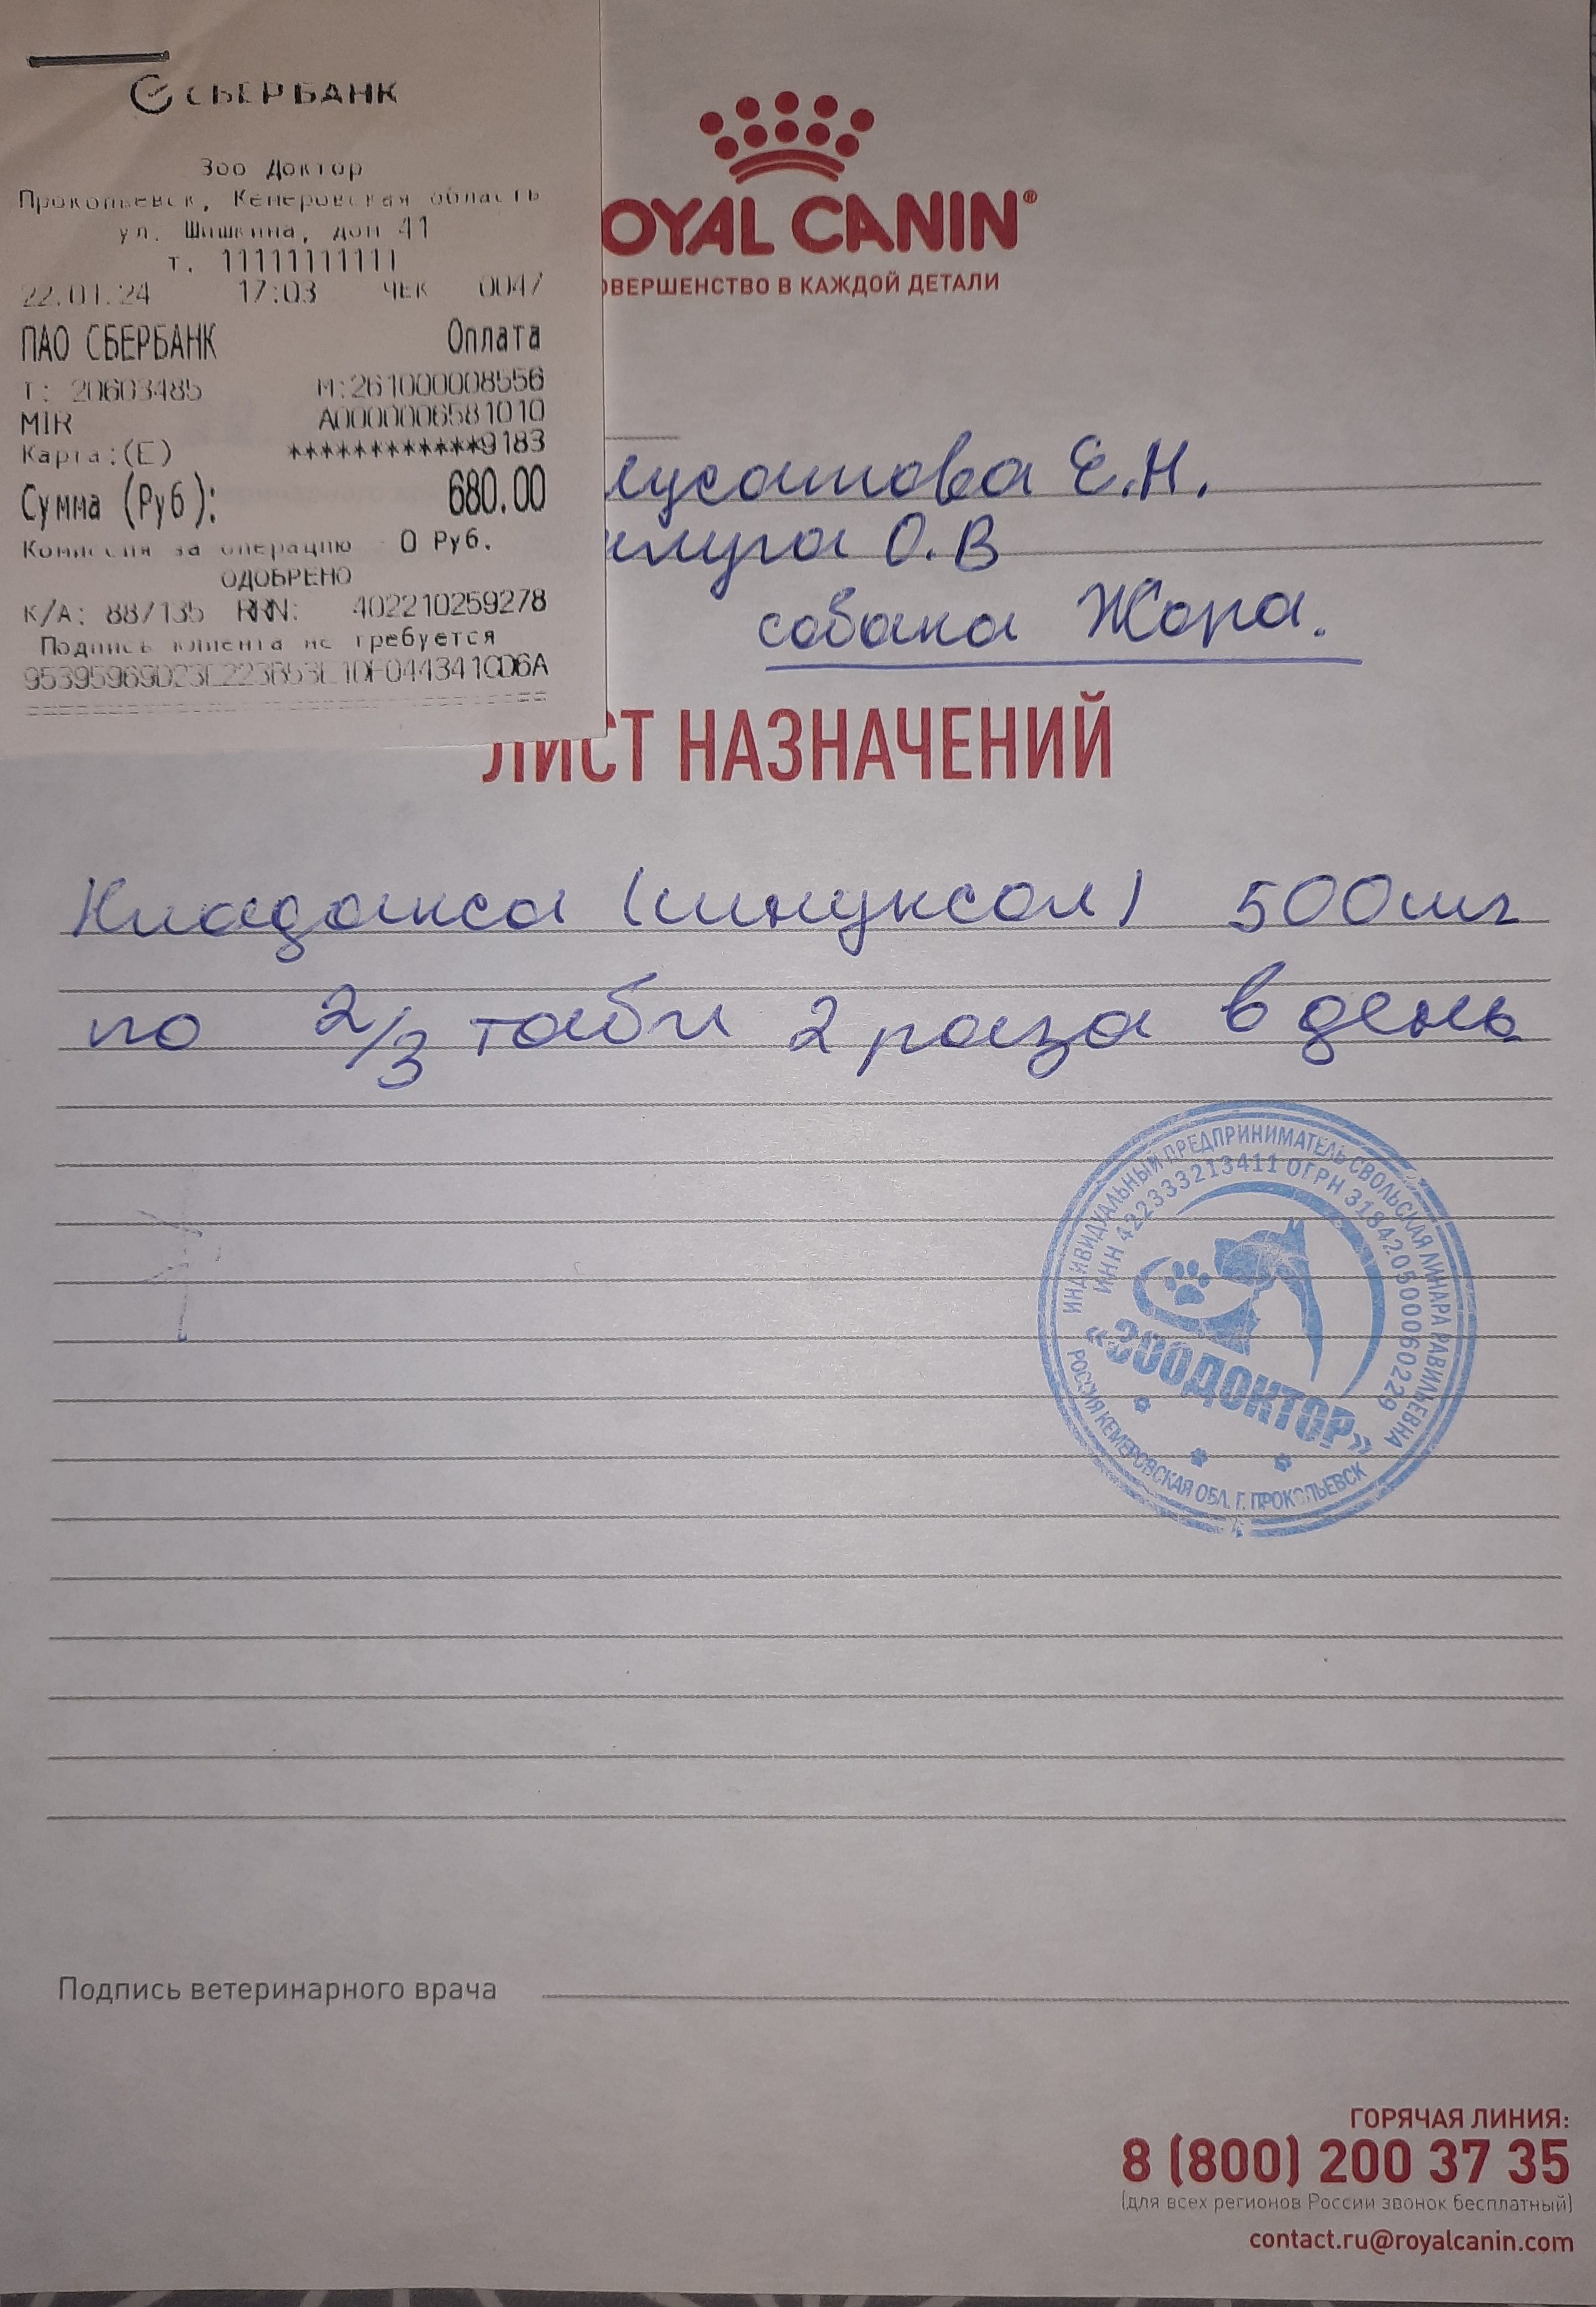 СБЕРБАНК
Зоо Доктор
Прокопьевск, Кемеровская область
ул. Шишкина, дом 41
т. 11111111111
22.01.24 17:03 ЧЕК 0047
ПАО СБЕРБАНК Оплата
Т: 20603485 М:261000008556
MIR A0000006581010
Карта:(E) ************9183
Сумма (Руб): 680.00
Комиссия за операцию - 0 Руб.
ОДОБРЕНО
К/А: 887135 RRN: 402210259278
Подпись клиента не требуется
ROYAL CANIN®
СОВЕРШЕНСТВО В КАЖДОЙ ДЕТАЛИ
Е.Н.
О.В
собака Жора.
ЛИСТ НАЗНАЧЕНИЙ
Кладакса (синуксол) 500мг
по 2/3 табл 2 раза в день
ИНДИВИДУАЛЬНЫЙ ПРЕДПРИНИМАТЕЛЬ СВОЛЬСКАЯ ЛИНАРА РАВИЛЬЕВНА
ИНН 422333213411 ОГРН 318420500060229
«ЗООДОКТОР»
РОССИЯ КЕМЕРОВСКАЯ ОБЛ. Г. ПРОКОПЬЕВСК
Подпись ветеринарного врача
ГОРЯЧАЯ ЛИНИЯ:
8 (800) 200 37 35
(для всех регионов России звонок бесплатный)
contact.ru@royalcanin.com